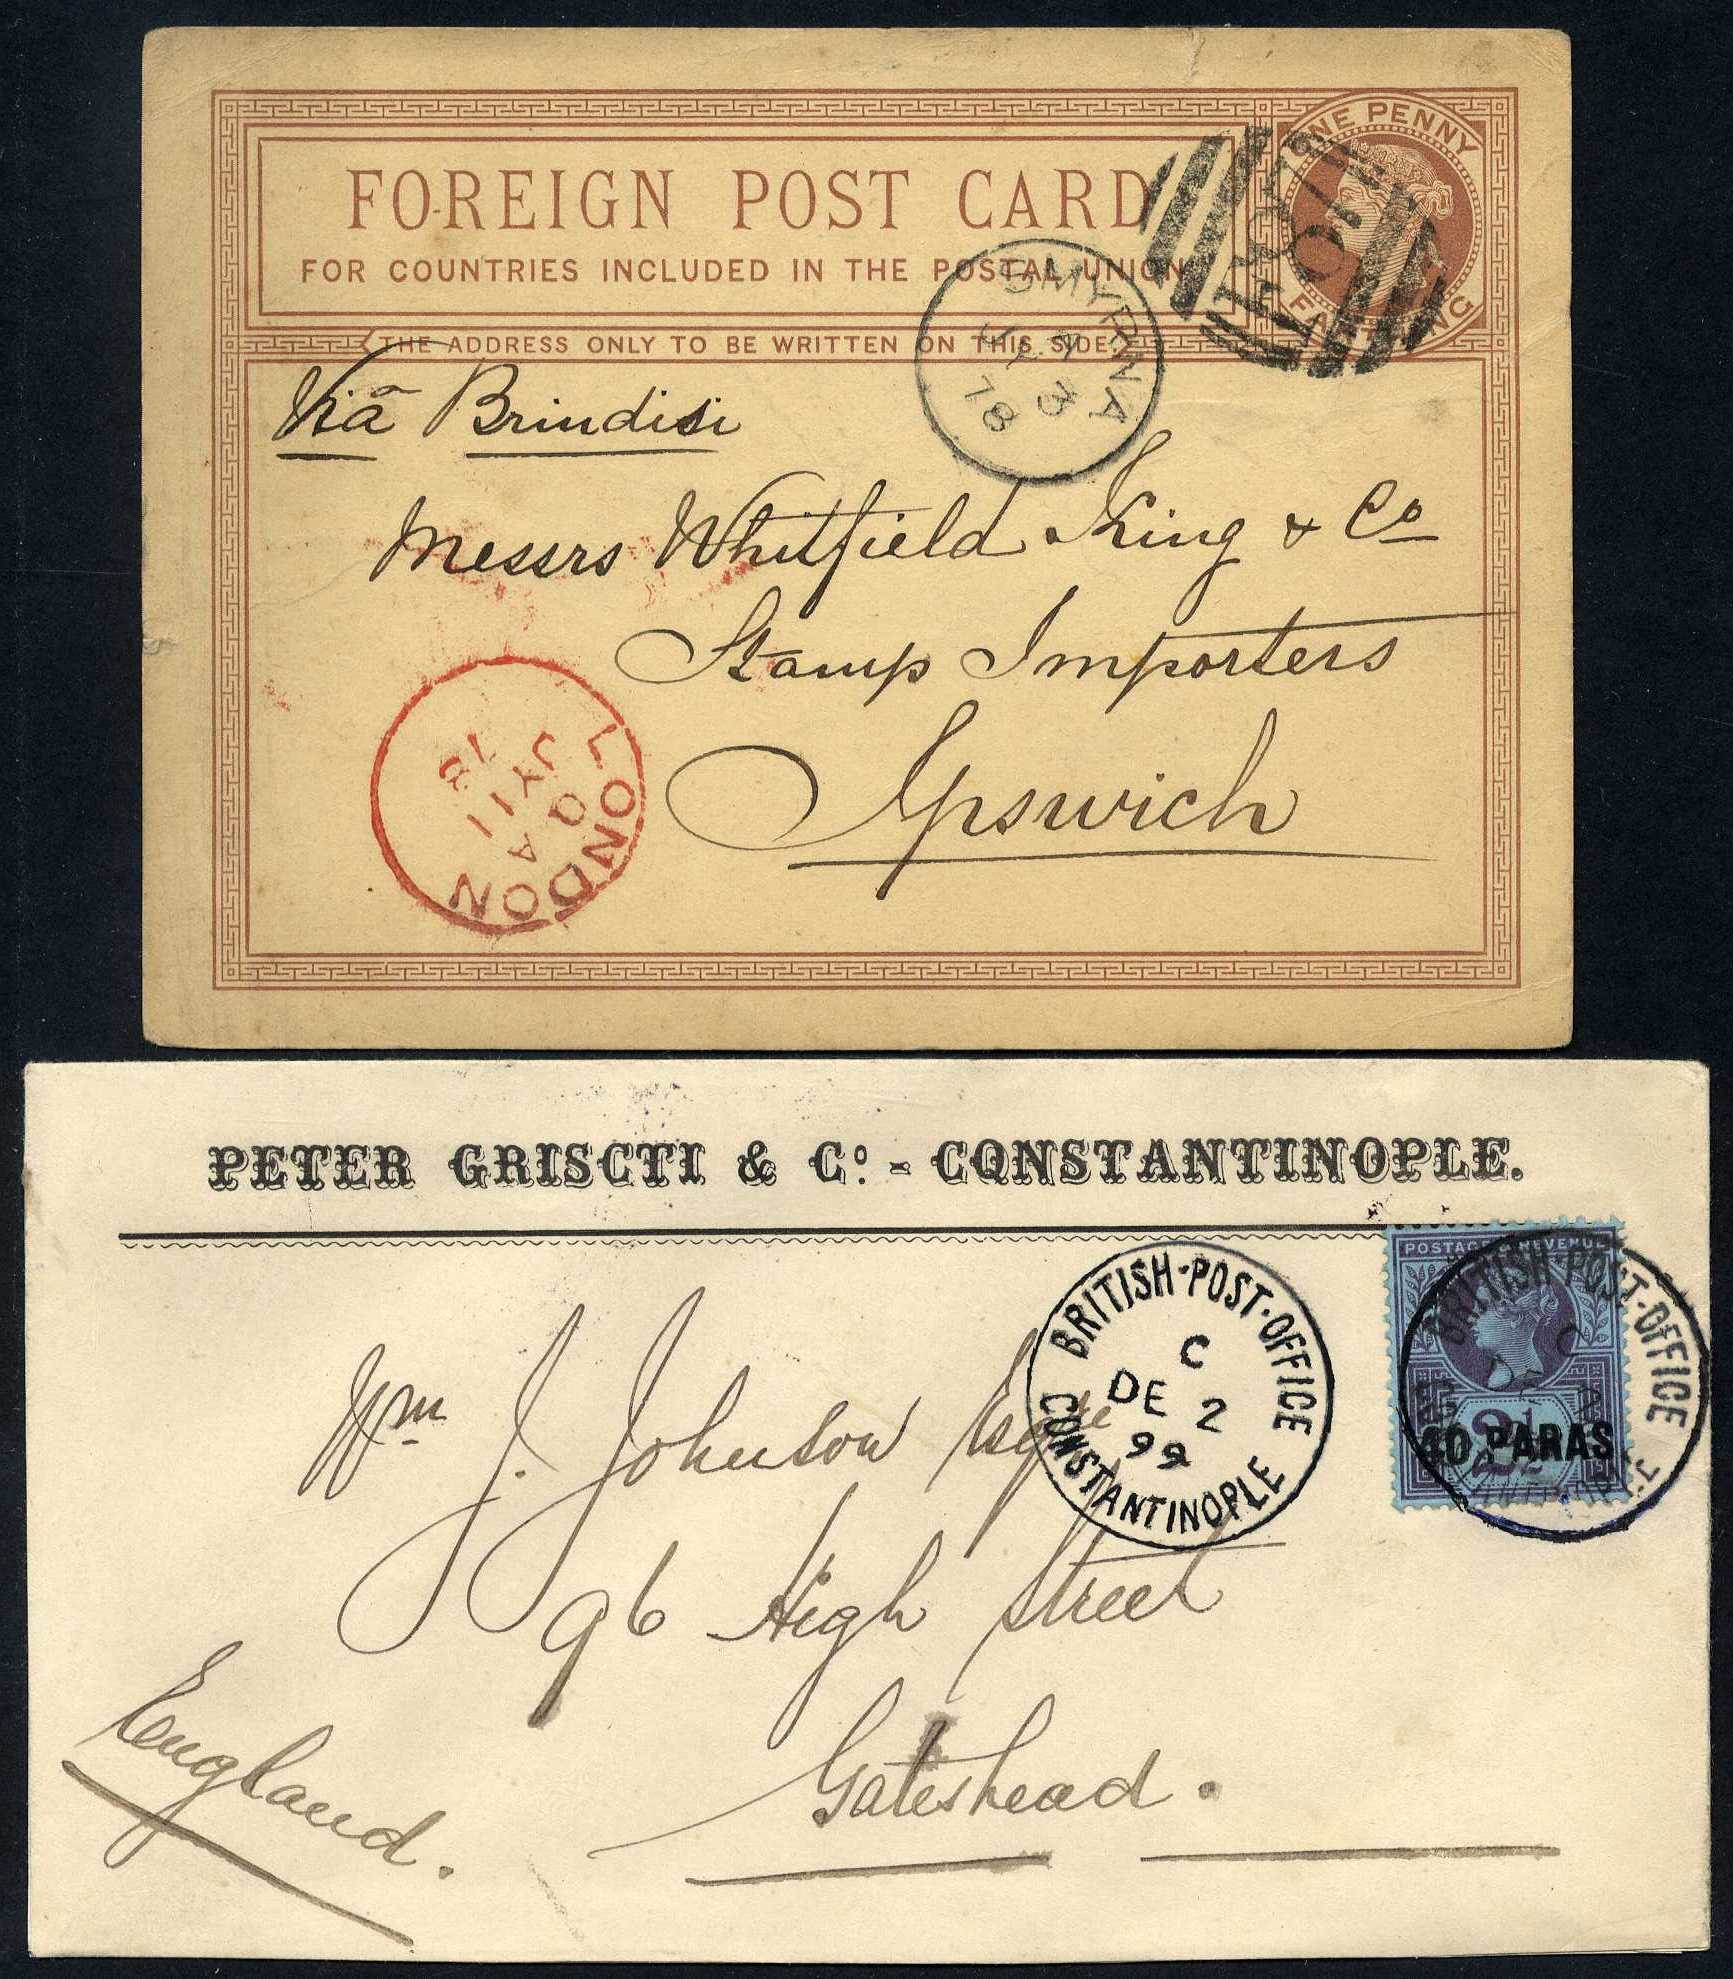 ONE PENNY
FOREIGN POST CARD
FOR COUNTRIES INCLUDED IN THE POSTAL UNION
FARTHING
THE ADDRESS ONLY TO BE WRITTEN ON THIS SIDE
SMYRNA
A
JY 3
78
Viâ Brindisi
Messrs Whitfield King & Co
Stamp Importers
Ipswich
LONDON
A
JY 11
78
PETER GRISCTI & Cº. - CONSTANTINOPLE.
POSTAGE & REVENUE
40 PARAS
BRITISH-POST-OFFICE
C
DE 2
99
CONSTANTINOPLE
BRITISH-POST-OFFICE
C
DE
Wm J. Johnson Esqre
96 High Street
Gateshead.
England.